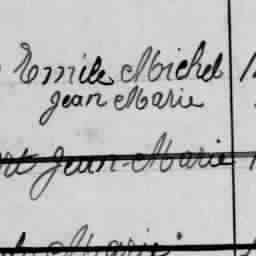 Emile Michel
Jean Marie
Jean-Marie
Marie